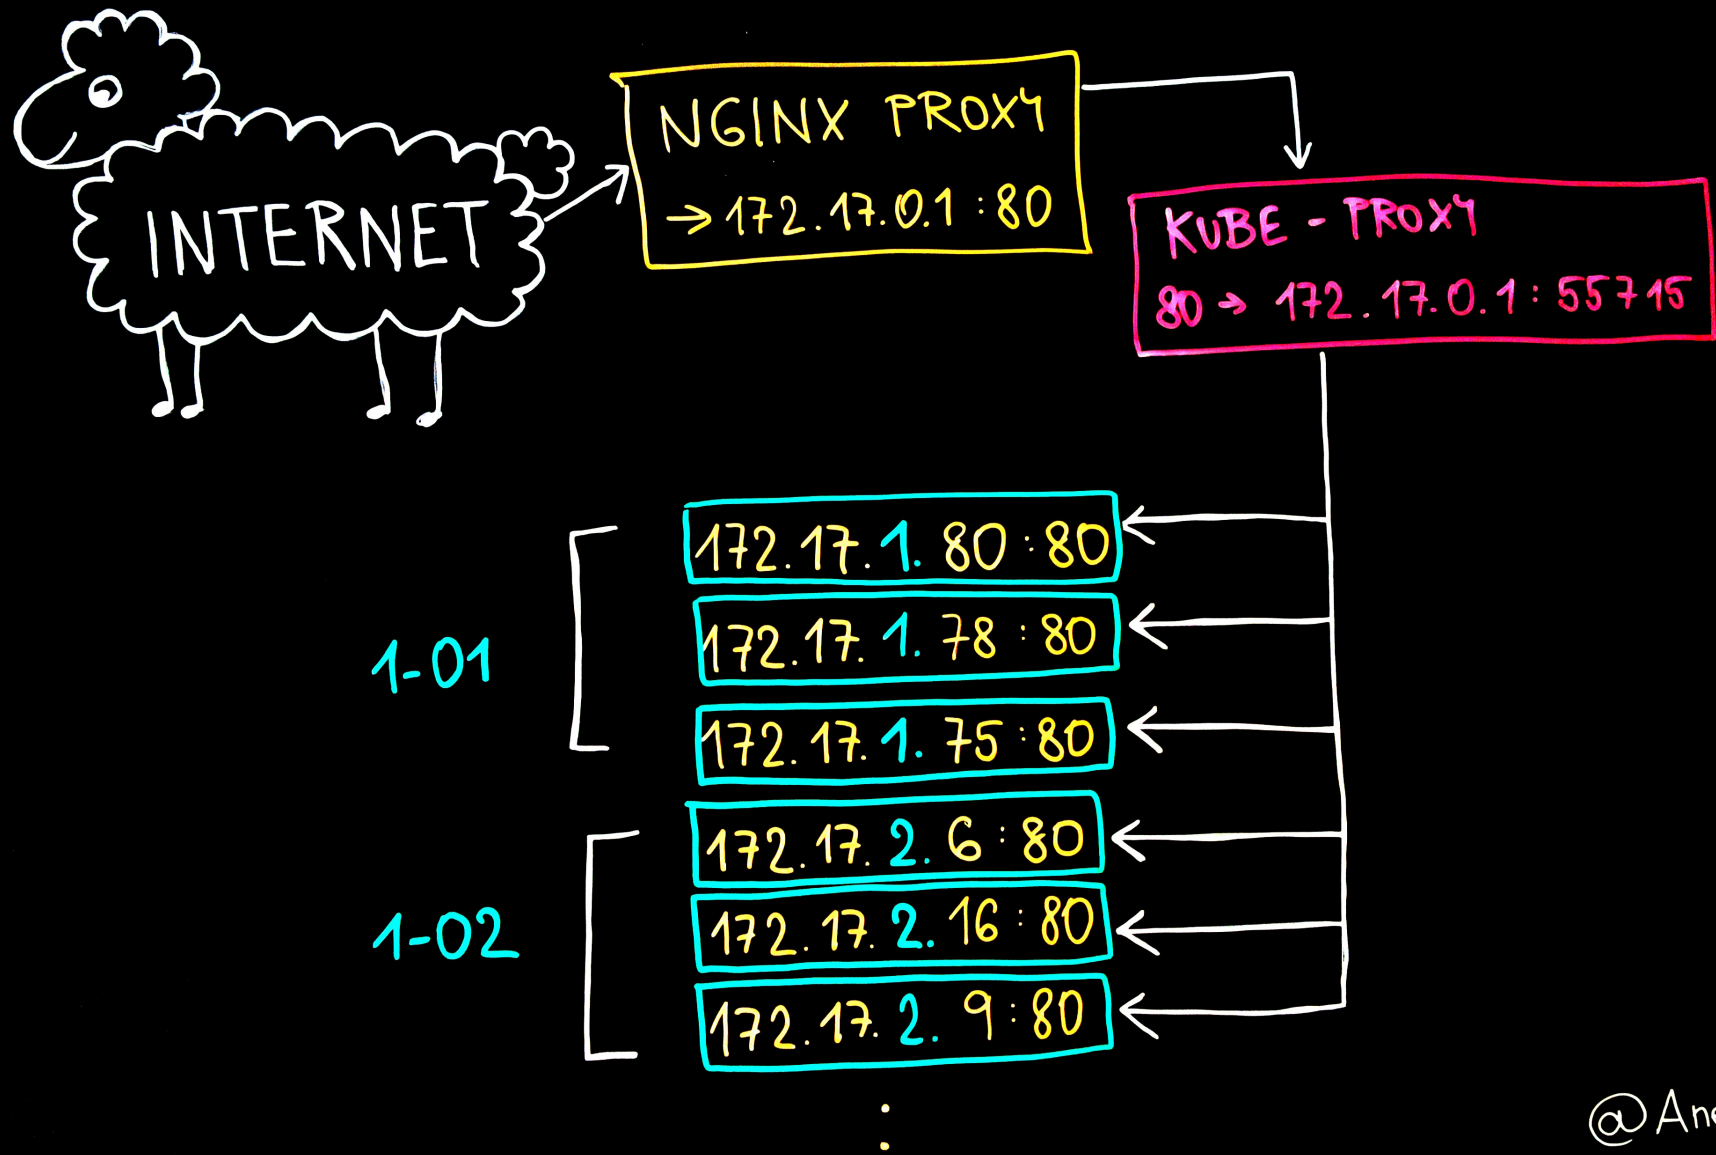 INTERNET
NGINX PROXY
→ 172.17.0.1:80
KUBE - PROXY
80 → 172.17.0.1:55715
1-01
172.17.1.80:80
172.17.1.78:80
172.17.1.75:80
1-02
172.17.2.6:80
172.17.2.16:80
172.17.2.9:80